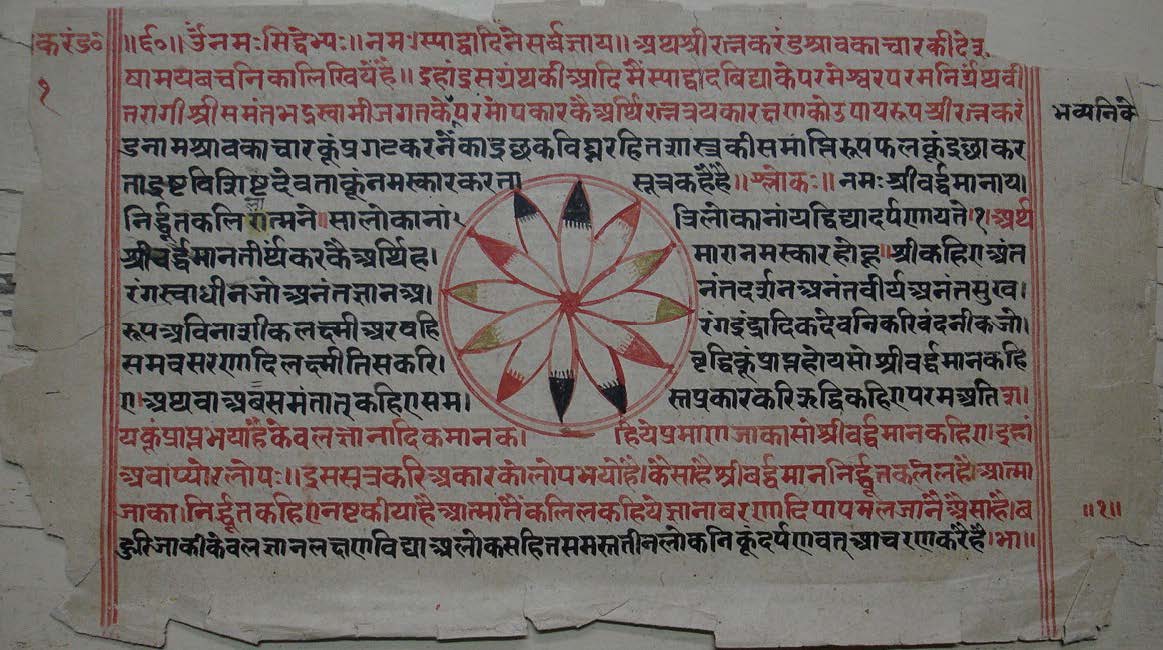 करंड॰
१
॥६०॥ ॐनमःसिद्धेभ्यः॥नमःस्याद्वादिनेसर्बज्ञाय॥अथश्रीरत्नकरंडश्रावकाचारकीदेश
षामयबचनिकालिखियेहै॥इहांइसग्रंथकीआदिमैंस्याद्वादबिद्याकेपरमेश्वरपरमनिर्ग्रंथवी
तरागीश्रीसमंतभद्रस्वामीजगतकेपरमोपकारकैअर्थिरत्नत्रयकारक्षणकोउपायरूपश्रीरत्नकरं
भव्यनिके
डनामश्रावकाचारकूंप्रगटकरनेंकाइछकविघ्नरहितशास्त्रकीसमाप्तिरूपफलकूंइछाकर
ताइष्टविशिष्टदेवताकूंनमस्कारकरता सूत्रकहैहै॥श्लोकः॥नमःश्रीवर्द्धमानाय।
निर्द्धूतकलिलात्मने॥सालोकानां। त्रिलोकानांयद्विद्यादर्पणायते।१।अर्थ
श्रीवर्द्धमानतीर्थकरकैअर्थिह। मारानमस्कारहोहू॥श्रीकहिएअंत
रंगस्वाधीनजोअनंतज्ञानअ। नंतदर्शनअनंतवीर्यअनंतसुख।
रूपअविनाशीकलक्ष्मीअरवहि रंगइंद्रादिकदेवनिकरिबंदनीकजो।
समवसरणादिलक्ष्मीतिसकरि। वृद्धिकूंप्राप्तहोयसोश्रीवर्द्धमानकहि
ए।अथवाअबसमंतात्कहिएसम। स्तप्रकारकरिऋद्धिकहिएपरमअतिशा।
यकूंप्राप्तभयाहैकेवलज्ञानादिकमानक। हियेप्रमाणजाकासोश्रीवर्द्धमानकहिए।इहां
अवाप्योरलोपः॥इससूत्रकरिअकारकोलोपभयोहै।कैसाहैश्रीबर्द्धमाननिर्द्धूतकलिलहैआत्मा
जाका।निर्द्धूतकहिएनष्टकीयाहैआत्मातैंकलिलकहियेज्ञानाबरणादिपापमलजानैंअैसाहै।ब
॥१॥
हुरिजाकीकेवलज्ञानलक्षणविद्याअलोकसहितसमस्ततीनलोकनिकूंदर्पणवत्आचरणकरैहै।भा॥